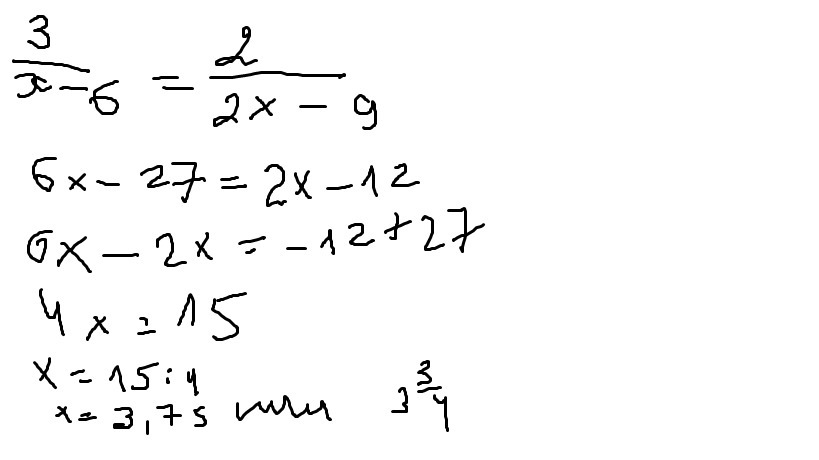 3/(x-6) = 2/(2x-9)
6x-27=2x-12
6x-2x=-12+27
4x=15
x=15:4
x=3,75 или 3 3/4